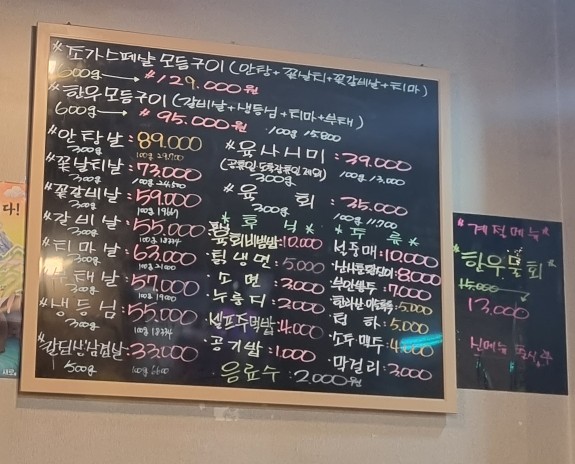 *쪼가스페샬 모듬구이 (안창+꽃살치+꽃갈비살+치마)
600g → *129.000원
*한우모듬구이 (갈비살+냉등심+치마+부채)
600g → *95.000원 100g 15800
*안창살 : 89.000
300g 100g 29700
*꽃살치살 : 73.000
300g 100g 24,500
*꽃갈비살 : 59.000
300g 100g 19667
*갈비살 : 55.000
300g 100g 18334
*치마살 : 63.000
300g 100g 21000
부채살 : 57.000
300g 100g 19000
*냉등심 : 55.000
300g 100g 18334
*칼집생삼겹살 : 33.000
500g 100g 6600
*육사시미 : 39.000
300g 100g 13,000
*육회 : 35.000
300g 100g 11700
*후식*
육회비빔밥 : 10.000
칡냉면 : 5.000
소면 : 3.000
누룽지 : 2.000
셀프주먹밥 : 4.000
공기밥 : 1.000
음료수 : 2.000원
*주류*
설중매 : 10.000
8.000
7.000
5.000
청하 : 5.000
소주 맥주 : 4.000
막걸리 : 3.000
*계절메뉴*
*한우물회
15.000
13,000
신메뉴
다!